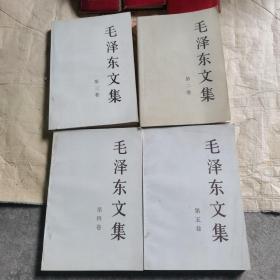 毛泽东文集
第三卷
毛泽东文集
第二卷
毛泽东文集
第四卷
毛泽东文集
第五卷